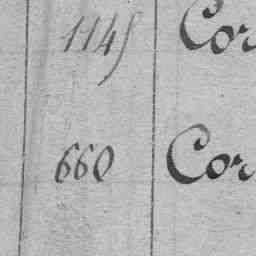 1145 Cor
660 Cor